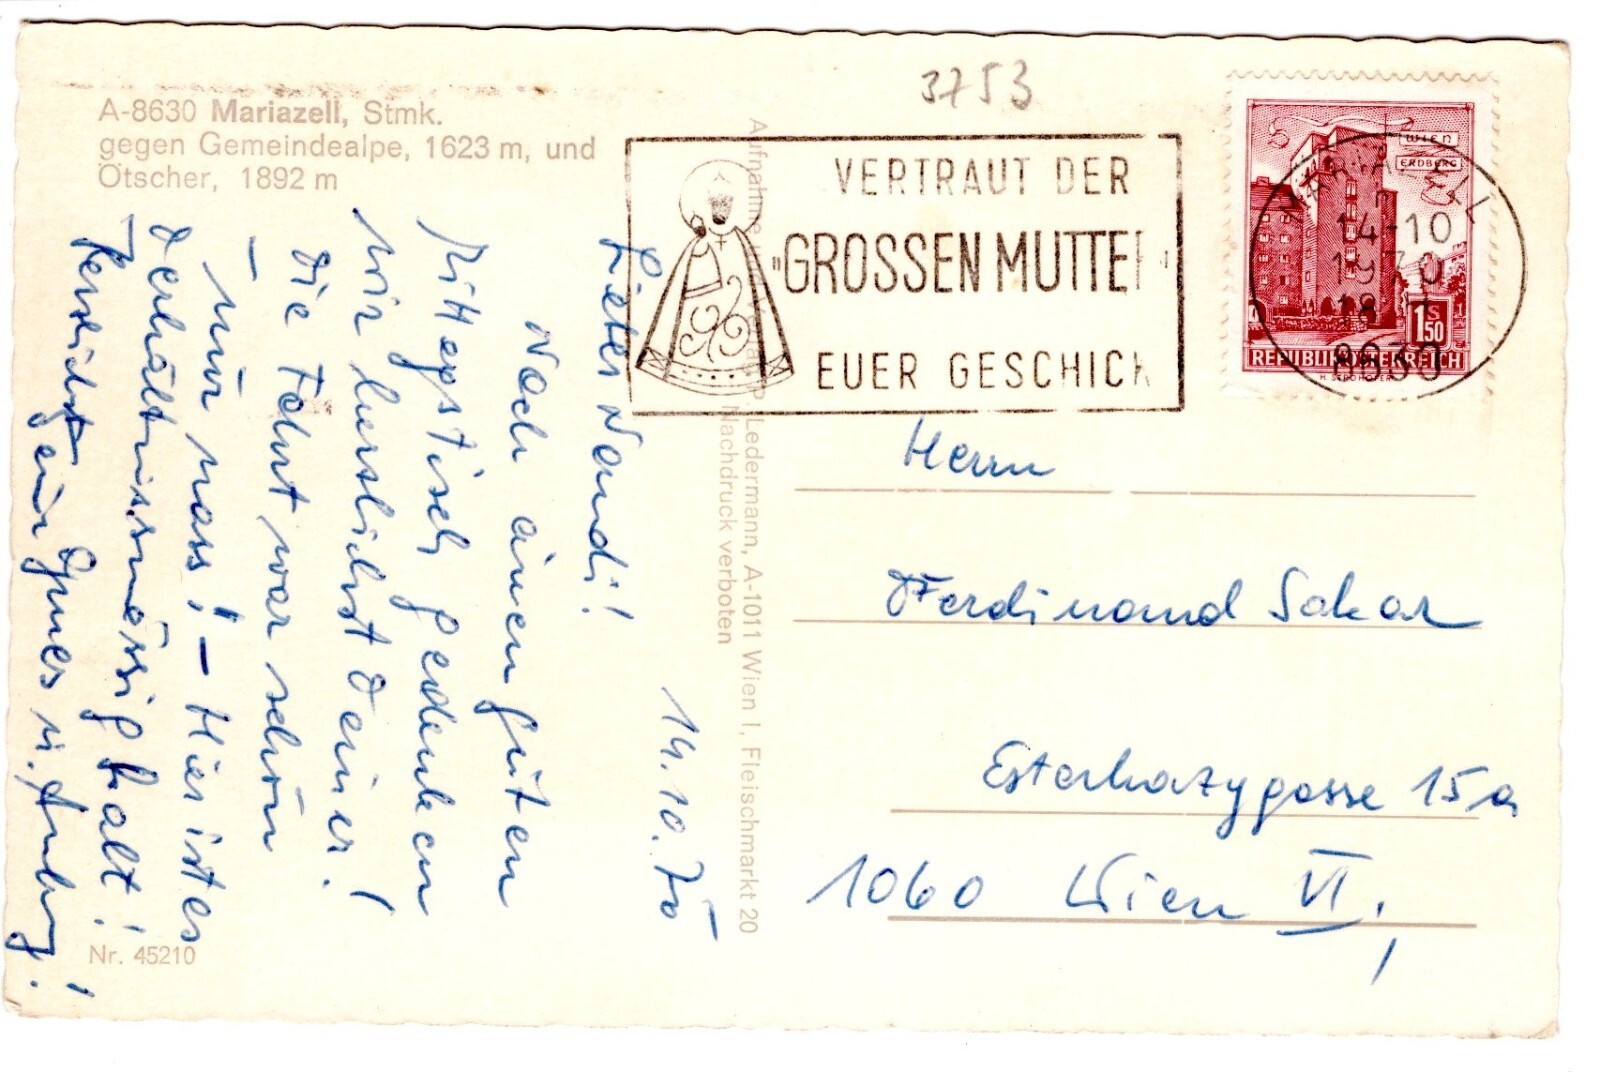 A-8630 Mariazell, Stmk.
gegen Gemeindealpe, 1623 m, und
Ötscher, 1892 m
3753
VERTRAUT DER
"GROSSEN MUTTER
EUER GESCHICK
WIEN
ERDBERG
S
150
REPUBLIK ÖSTERREICH
MARIAZELL
14-10
1970
18
8630
14.10.70
Lieber Nandi!
Nach einem guten
Mittagstisch gedenken
wir herzlichst deiner!
Die Fahrt war schön
– nur nass! – Hier ist es
verhältnismässig kalt!
Herzlichst ein Grues u.
Herrn
Ferdinand Sakar
Esterhazygasse 15a
1060 Wien VI,
Ledermann, A-1011 Wien I, Fleischmarkt 20
Nachdruck verboten
Nr. 45210